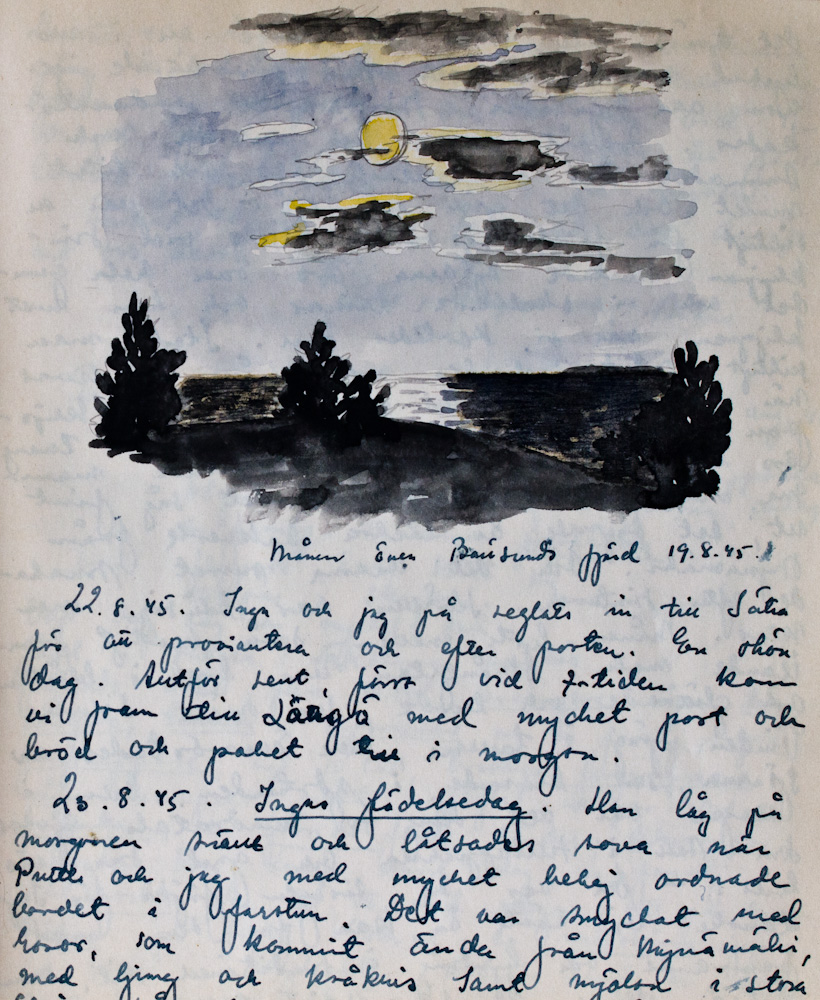 Månen över Barösunds fjärd 19.8.45
22.8.45 Inga och jag på seglats in till Sätra
för att proviantera och efter posten. En skön
dag. Avför sent, först vid 7-tiden kom
vi fram till Långö med mycket post och
bröd och paket till i morgon.
23.8.45. Ingas födelsedag. Hon låg på
morgonen snällt och låtsades sova när
Putte och jag med mycket behåj ordnade
bordet i farstun. Det var smyckat med
rosor, som kommit ända från
med ljung och kråkris samt mjölon i stora